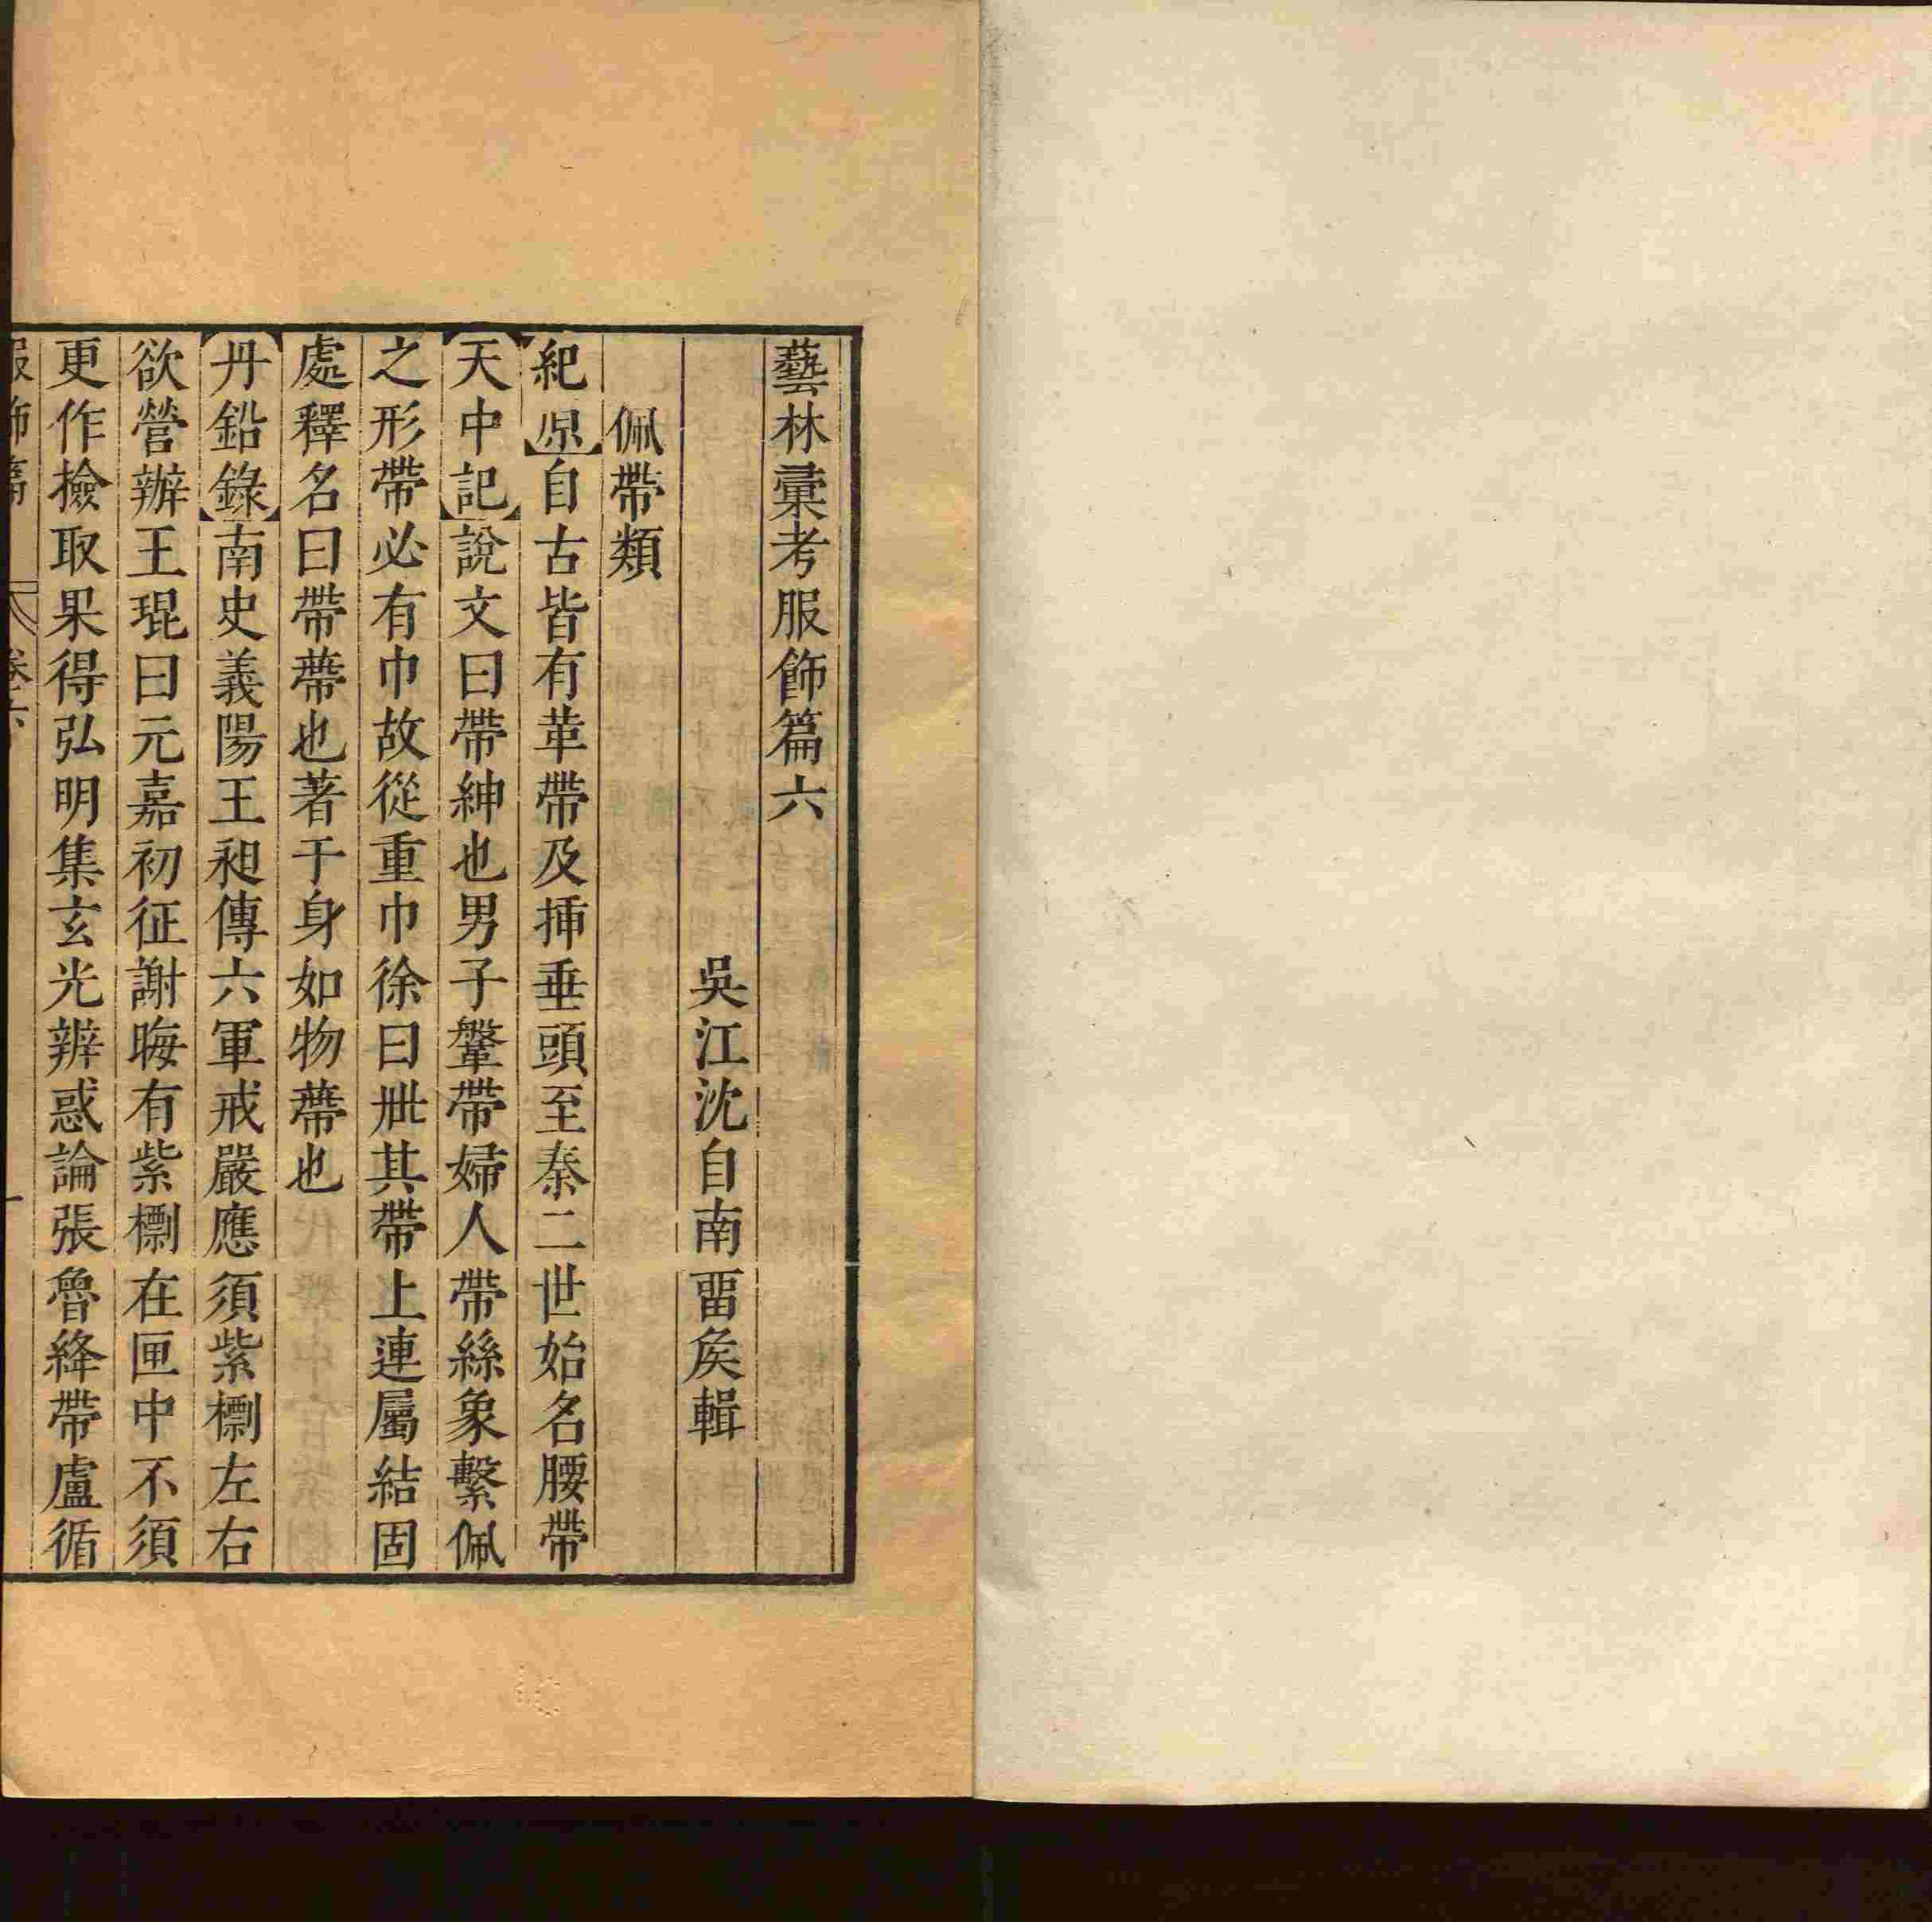 藝林彚考服飾篇六
吳江沈自南畱矦輯
佩帶類
紀原自古皆有革帶及揷垂頭至秦二世始名腰帶
天中記說文曰帶紳也男子鞶帶婦人帶絲象繫佩
之形帶必有巾故從重巾徐曰丗其帶上連屬結固
處釋名曰帶蔕也著于身如物蔕也
丹鉛錄南史義陽王昶傳六軍戒嚴應須紫標左右
欲營辦王琨曰元嘉初征謝晦有紫標在匣中不須
更作撿取果得弘明集玄光辨惑論張魯絳帶盧循
服飾篇 卷六 一